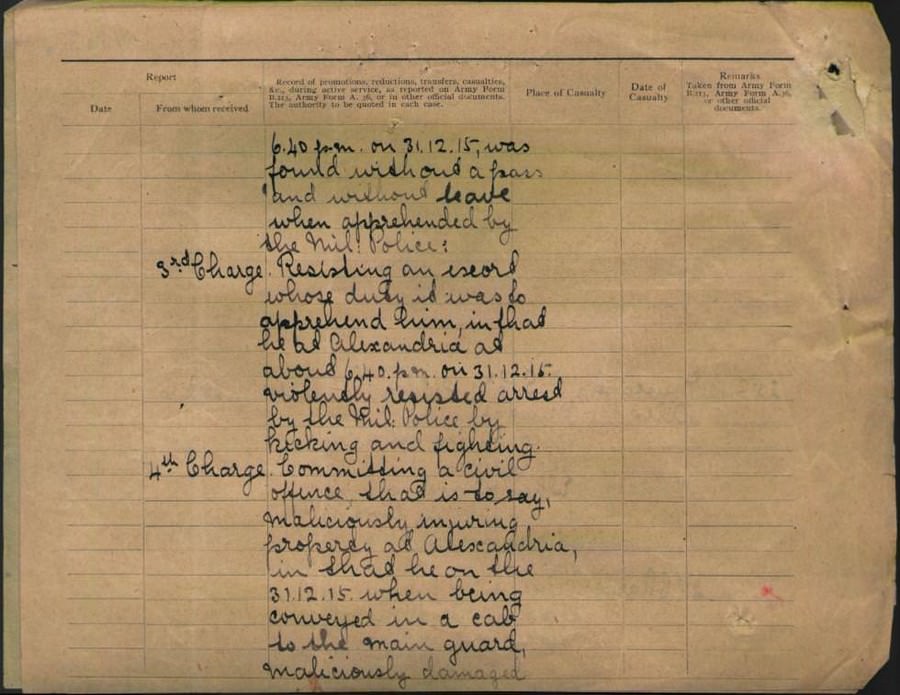 Report
Date
From whom received
Record of promotions, reductions, transfers, casualties,
&c., during active service, as reported on Army Form
B.213, Army Form A. 36, or in other official documents.
The authority to be quoted in each case.
Place of Casualty
Date of
Casualty
Remarks
Taken from Army Form
B.213, Army Form A.36,
or other official
documents.
6.40 p.m. on 31.12.15, was
found without a pass
and without leave
when apprehended by
the Mil: Police:
3rd Charge. Resisting an escort
whose duty it was to
apprehend him, in that
he at Alexandria at
about 6.40. p.m. on 31.12.15.
violently resisted arrest
by the Mil: Police by
kicking and fighting.
4th Charge. Committing a civil
offence, that is to say,
maliciously injuring
property at Alexandria,
in that he on the
31.12.15. when being
conveyed in a cab
to the main guard,
maliciously damaged